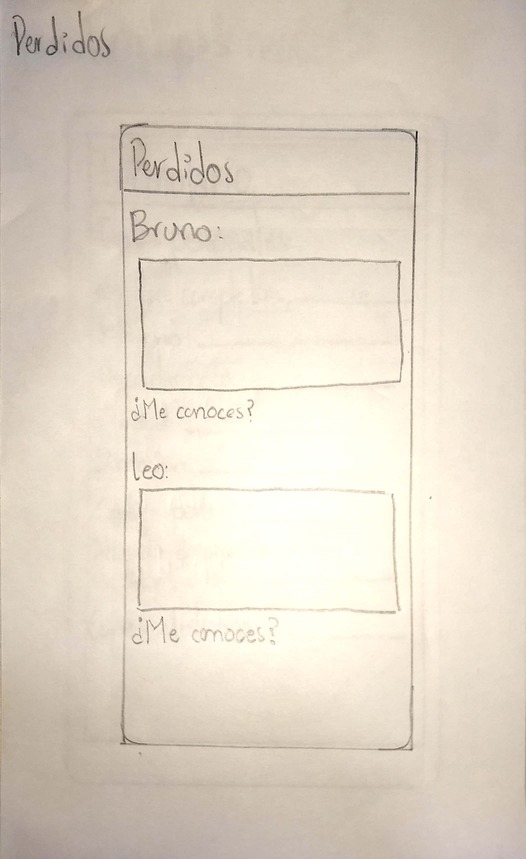 Perdidos
Perdidos
Bruno:
¿Me conoces?
Leo:
¿Me conoces?